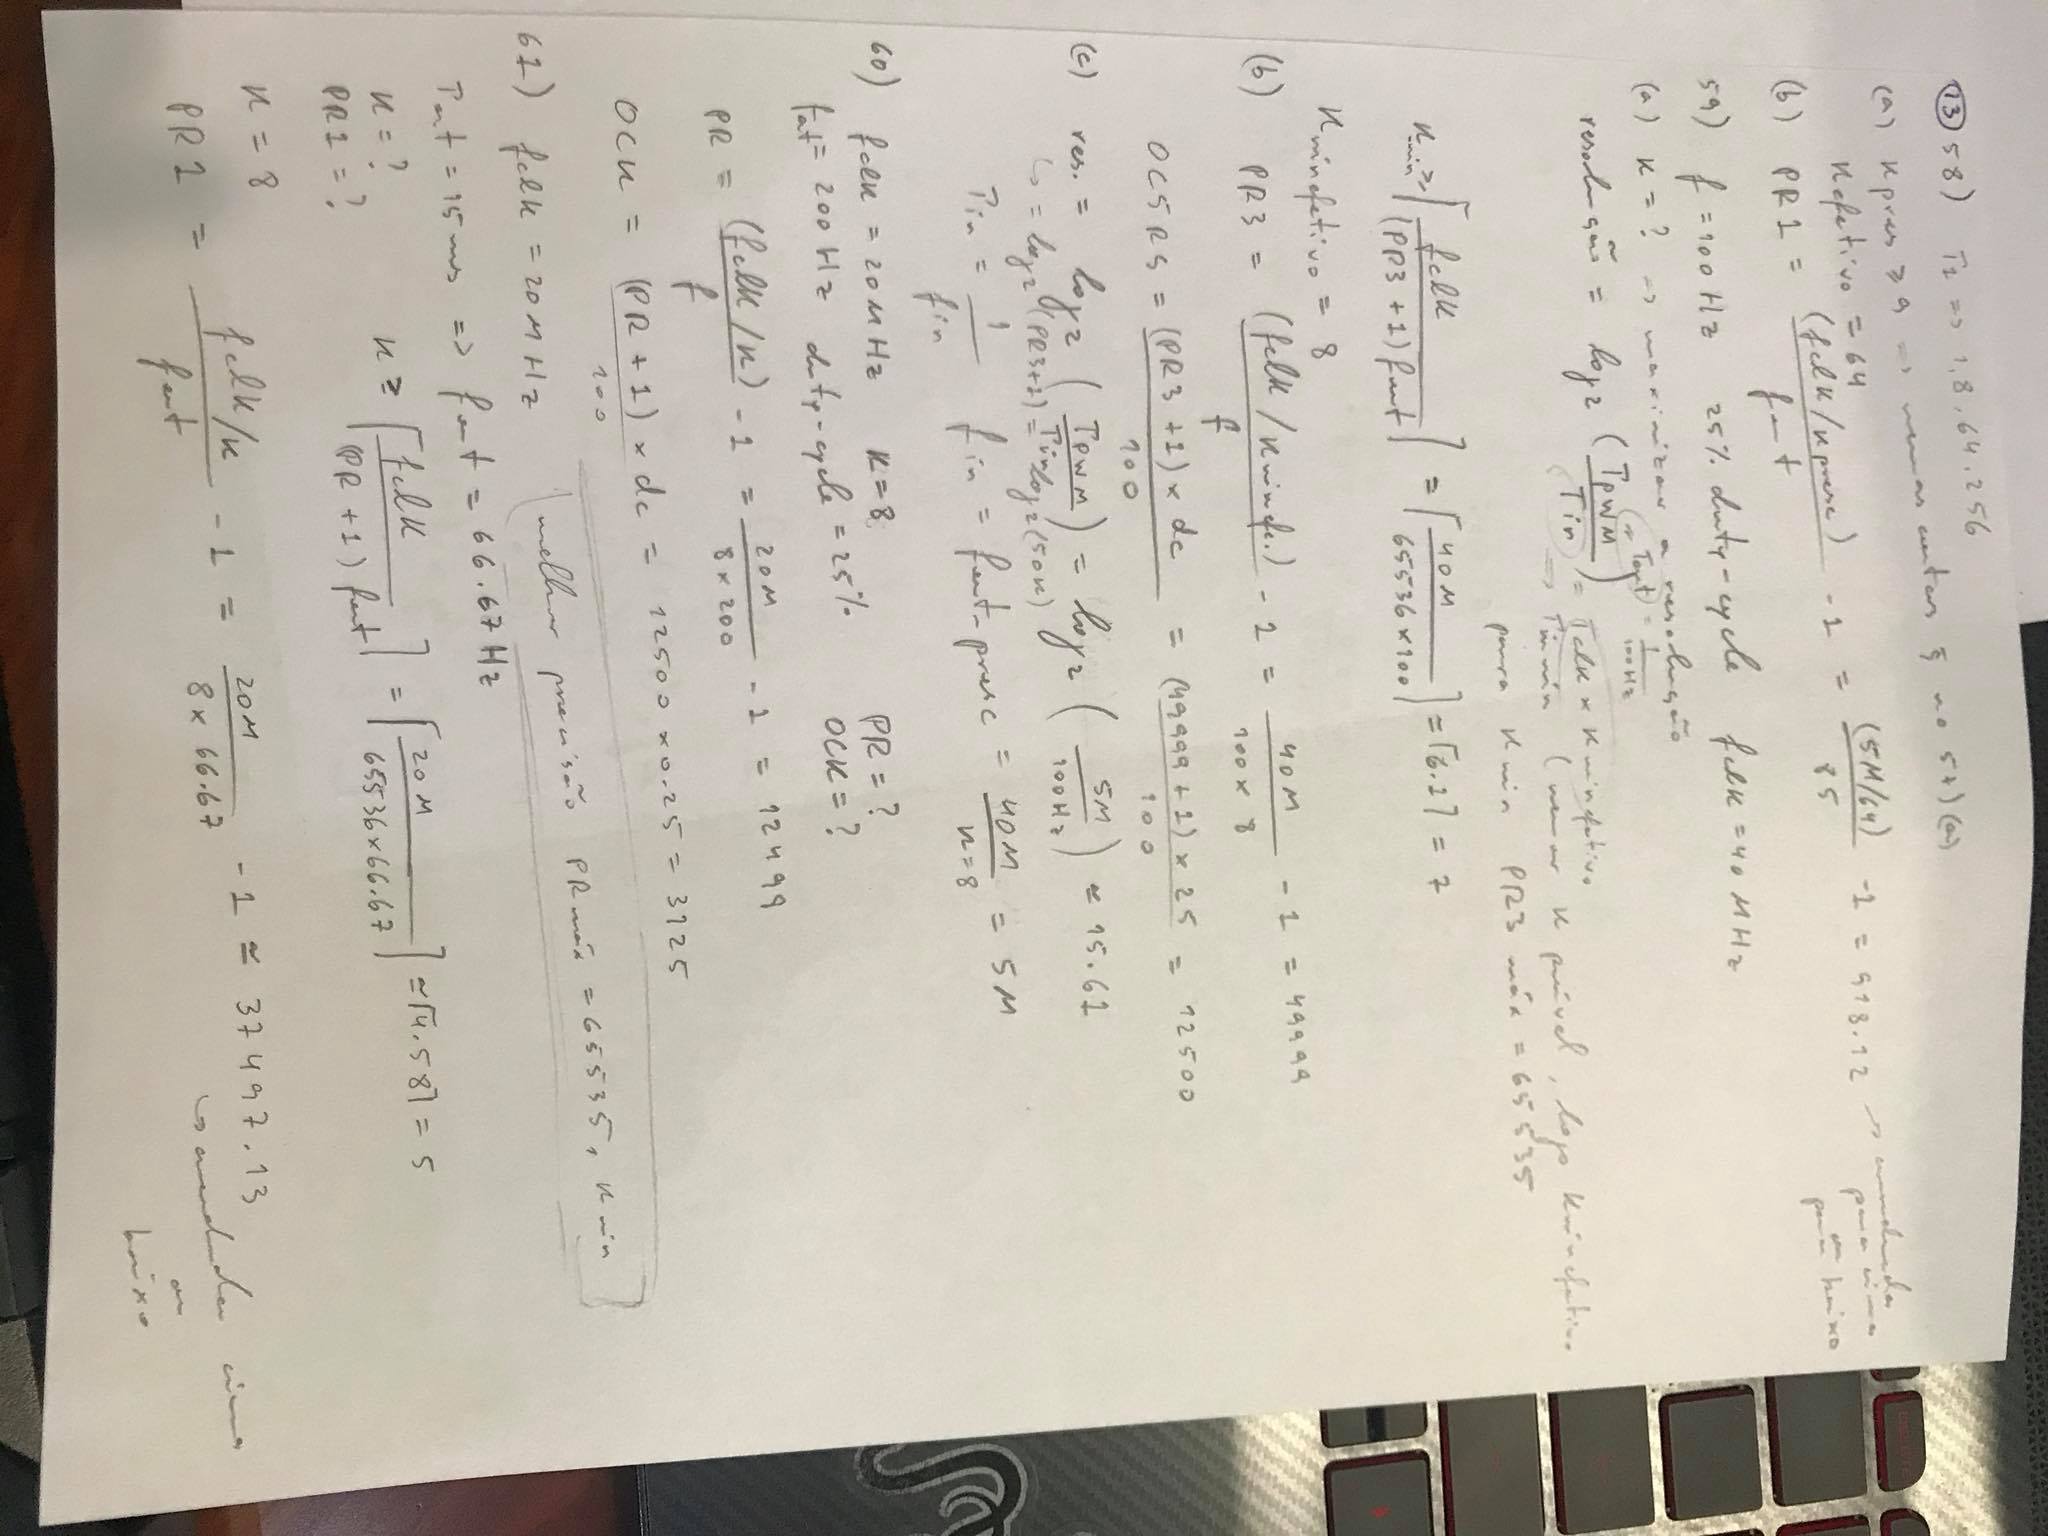 13 58) T1 => 1, 8, 64, 256
(a) Kpres ≥ 9 => mesmas contas q no 57) (a)
Kefetivo = 64
(b) PR1 = (fclk/kpresc) / fout - 1 = (5M/64) / 85 - 1 = 918.12 → arredonda para cima ou para baixo
59) f = 100 Hz 25% duty-cycle fclk = 40 MHz
(a) K = ? => maximizar a resolução
resolução = log2 (TPWM / Tin) → Tout = 1 / 100Hz
= Tclk × Kminefetivo
=> Tinmín (menor K possível, logo Kminefetivo
para Kmin PR3 máx = 65535
Kmin ≥ ⌈fclk / (PR3 + 1) fout⌉ = ⌈40M / 65536 × 100⌉ ≃ ⌈6.1⌉ = 7
Kminefetivo = 8
(b) PR3 = (fclk / Kminefe.) / f - 1 = 40M / 100 × 8 - 1 = 49999
OC5RS = (PR3 + 1) × dc / 100 = (49999 + 1) × 25 / 100 = 12500
(c) res. = log2 (TPWM / Tin) = log2 (5M / 100Hz) ≃ 15.61
↳ = log2 (PR3+1) = log2 (50K)
Tin = 1 / fin fin = fout_presc = 40M / K=8 = 5M
60) fclk = 20MHz K = 8 PR = ?
fout = 200Hz duty-cycle = 25% OCK = ?
PR = (fclk/K) / f - 1 = 20M / 8 × 200 - 1 = 12499
OCK = (PR + 1) × dc / 100 = 12500 × 0.25 = 3125
melhor precisão PRmáx = 65535, Kmin
61) fclk = 20MHz
Tout = 15 ms => fout = 66.67 Hz
K = ? K ≥ ⌈fclk / (PR + 1) fout⌉ = ⌈20M / 65536 × 66.67⌉ ≃ ⌈4.58⌉ = 5
PR1 = ?
K = 8
PR1 = fclk/K / fout - 1 = 20M / 8 × 66.67 - 1 ≃ 37497.13
↳ arredondar cima
ou
baixo